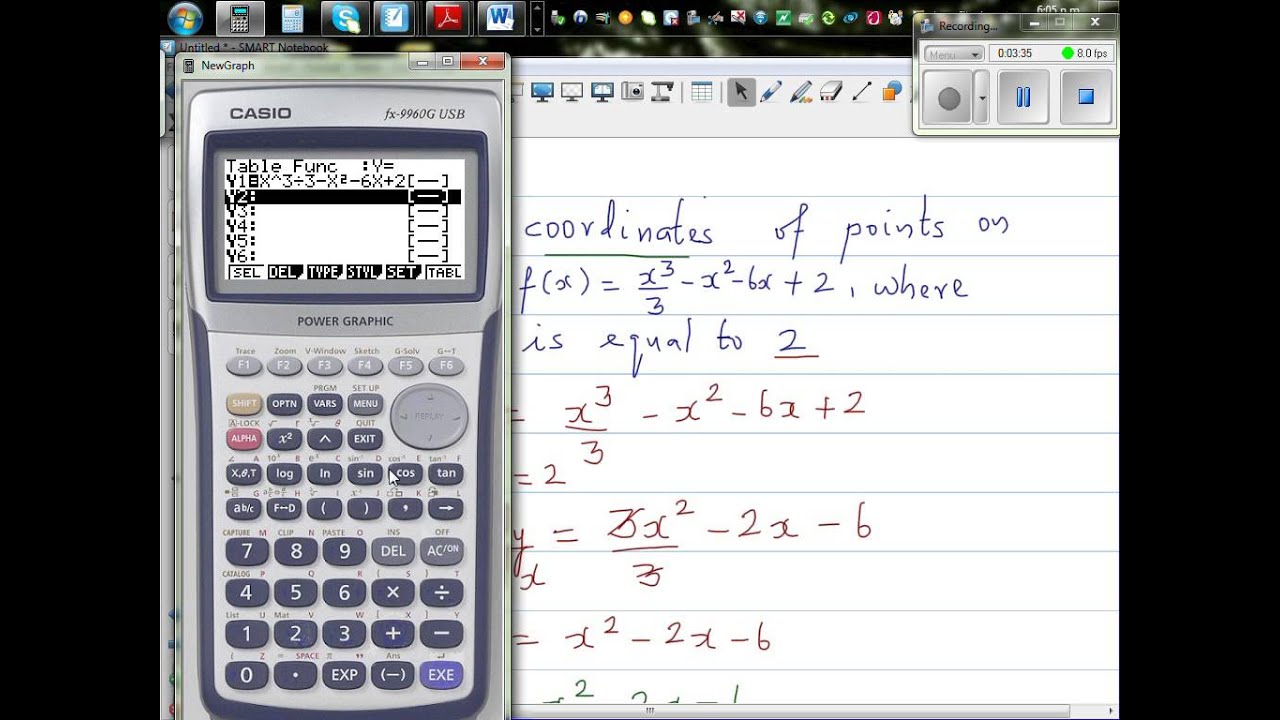 6:05 p.m.
Untitled * - SMART Notebook
Recording...
Menu
0:03:35
8.0 fps
NewGraph
CASIO
fx-9960G USB
Table Func :Y=
Y1=X^3÷3-X²-6X+2[—]
Y2: [—]
Y3: [—]
Y4: [—]
Y5: [—]
Y6: [—]
SEL DEL TYPE STYL SET TABL
POWER GRAPHIC
Trace Zoom V-Window Sketch G-Solv G↔T
F1 F2 F3 F4 F5 F6
PRGM SET UP
SHIFT OPTN VARS MENU
REPLAY
A-LOCK √ r ˣ√ θ QUIT
ALPHA x² ^ EXIT
∠ A 10ˣ B eˣ C sin⁻¹ D cos⁻¹ E tan⁻¹ F
X,θ,T log ln sin cos tan
G H I J K L
ab/c F↔D ( ) , →
CAPTURE M CLIP N PASTE O INS OFF
7 8 9 DEL AC/ON
CATALOG P Q R { S } T
4 5 6 × ÷
List U Mat V W [ X ] Y
1 2 3 + −
i Z = SPACE π " Ans
0 . EXP (−) EXE
coordinates of points on
f(x) = x³/3 - x² - 6x + 2, where
is equal to 2
= x³/3 - x² - 6x + 2
= 2
y/x = 3x²/3 - 2x - 6
= x² - 2x - 6